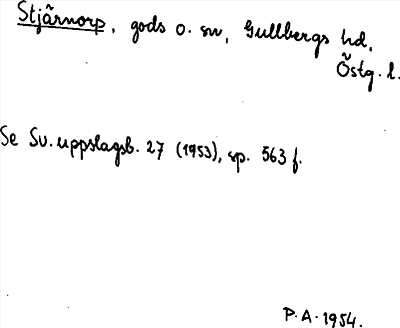 Stjärnorp, gods o. sn, Gullbergs hd,
Östg. l.
Se Sv. uppslagsb. 27 (1953), sp. 563 f.
P.A. 1954.